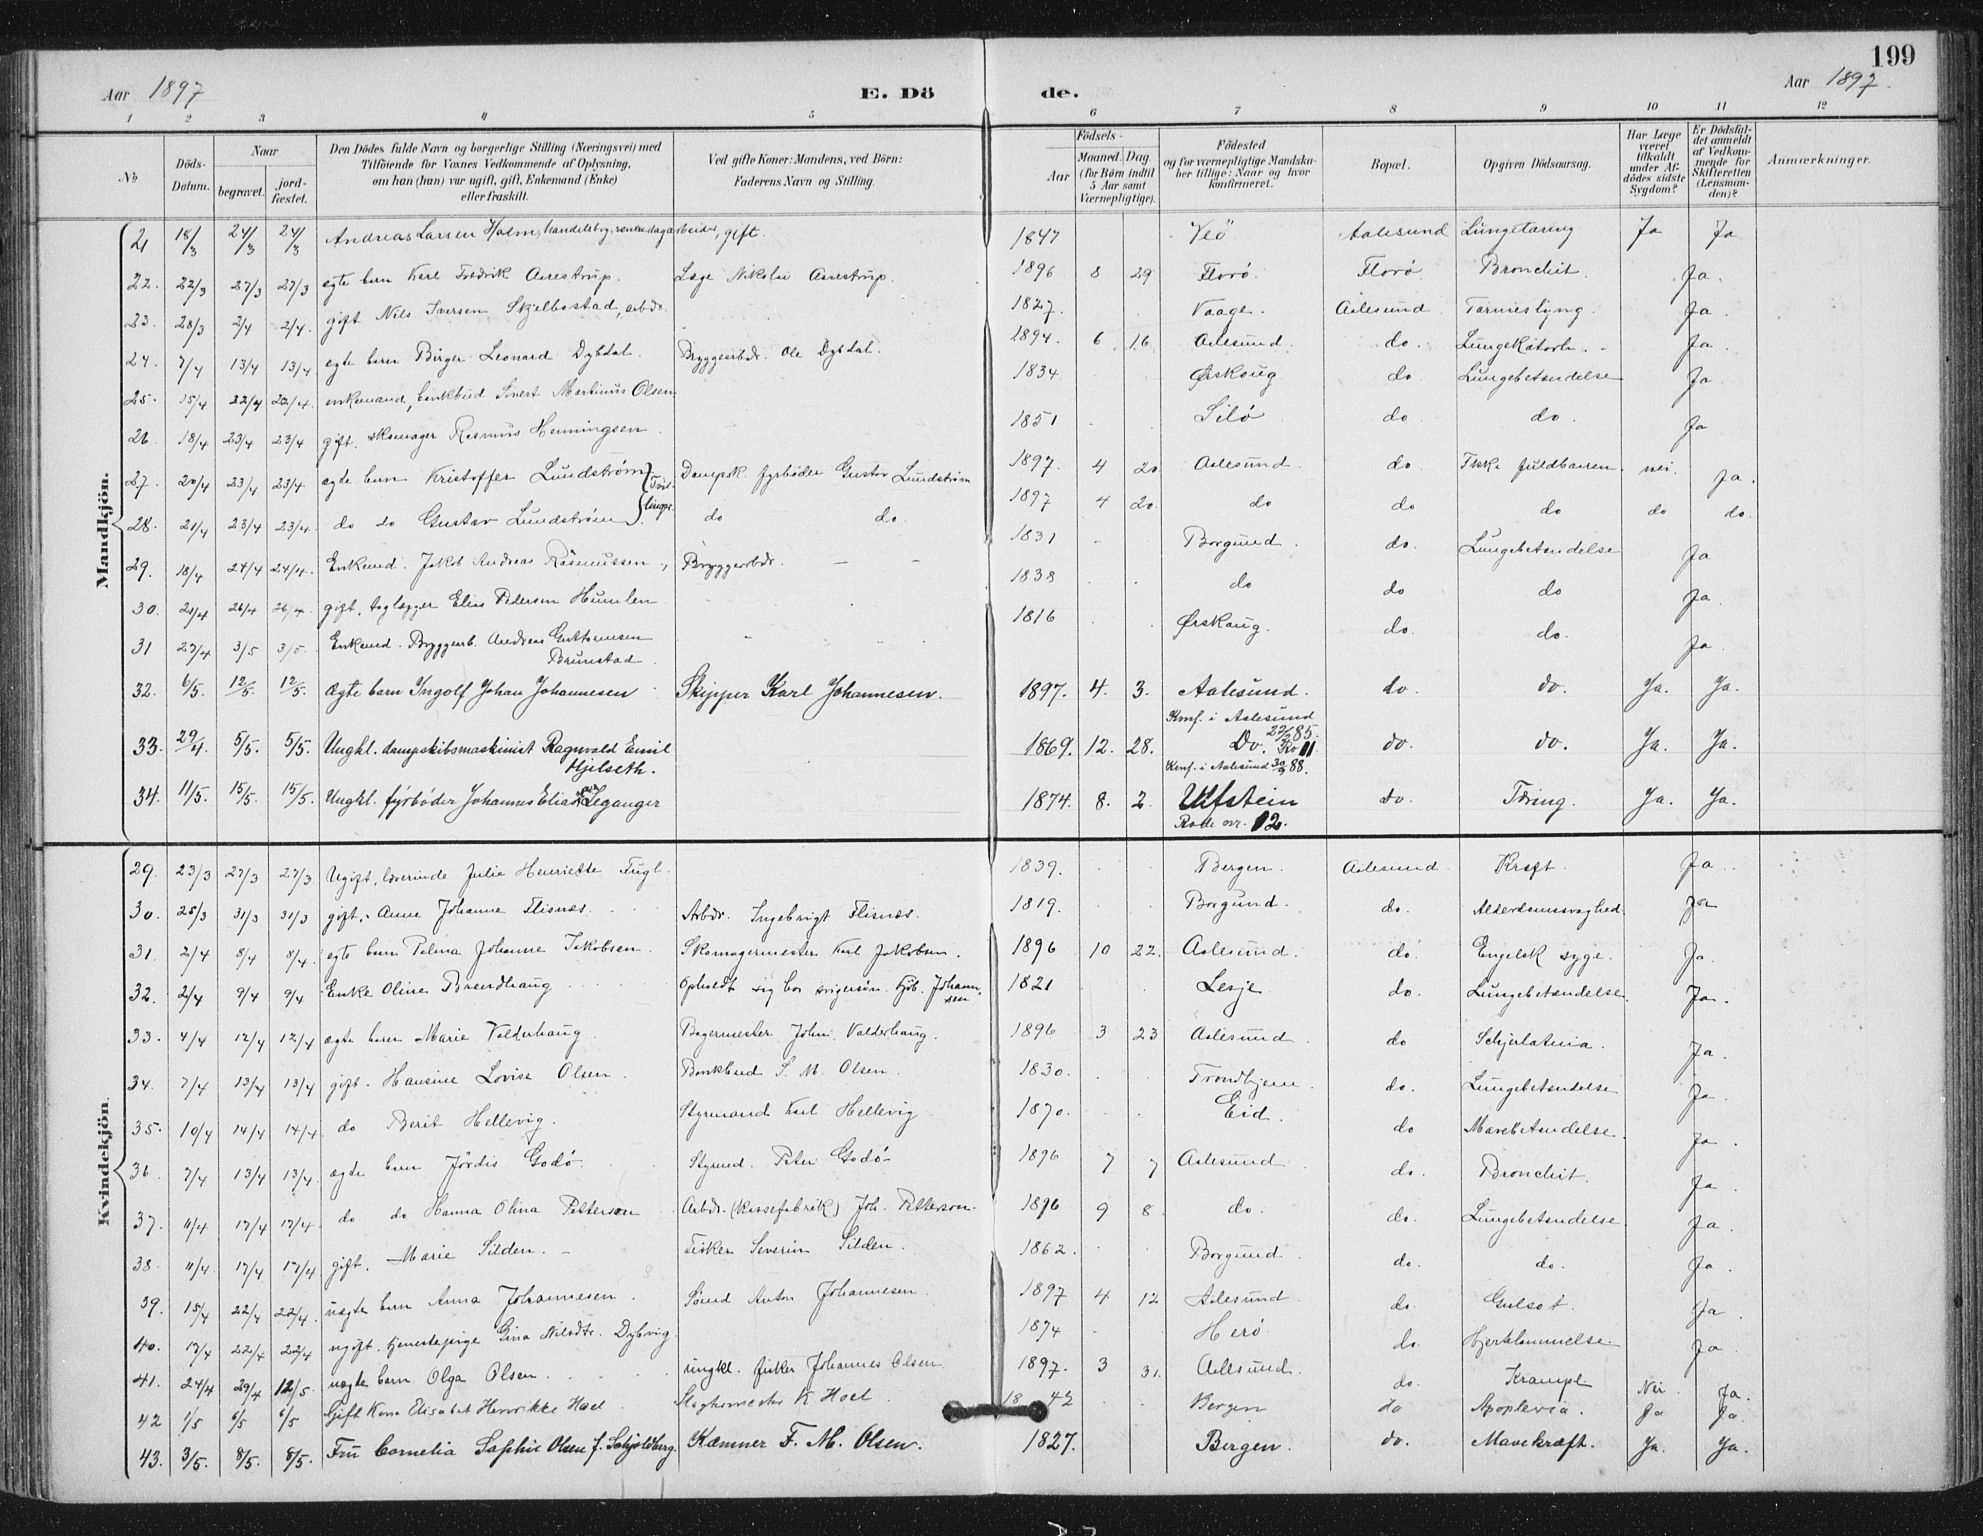 199
Aar 1897
E. Dö de.
Aar 1897.
1 2 3 4 5 6 7 8 9 10 11 12
No
Döds-Datum.
Naar
begravet.
jord-fæstet.
Den Dödes fulde Navn og borgerlige Stilling (Næringsvei) med
Tilföiende for Voxnes Vedkommende af Oplysning,
om han (hun) var ugift, gift, Enkemand (Enke)
eller fraskilt.
Ved gifte Koner: Mandens, ved Börn:
Faderens Navn og Stilling.
Födsels-
Aar
Maaned. Dag.
(for Börn indtil
5 Aar samt
Værnepligtige).
Födested
og for værnepligtige Mandska-
ber tillige: Naar og hvor
konfirmeret.
Bopæl.
Opgiven Dödsaarsag.
Har Læge
været
tilkaldt
under Af-
dödes sidste
Sygdom?
Er Dödsfal-
det anmeldt
af Vedkom-
mende for
Skifteretten
(Lensman-
den)?
Anmærkninger.
Mandkjön.
21 18/3 24/3 24/3 Andreas Larsen Holm, handelsbg. senere dagarbeider, gift. 1847 Veö Aalesund Lungetæring Ja Ja
22. 22/3 27/3 27/3 ægte barn Karl Fredrik Aarestrup. Læge Nikolai Aarestrup. 1896 8 29 Florö. Florö Bronchit. Ja.
23. 28/3 2/4 2/4. gift Nils Iversen Skjelbostad, arbdr. 1827. Vaage. Aalesund Tarmeslyng. Ja.
24. 7/4 13/4 13/4 ægte barn Birger Leonard Dybdal. Bryggearbdr. Ole Dybdal. 1894. 6 16 Aalesund. do. Lungekatarh. Ja.
25. 15/4 22/4 22/4. enkemand, bankbud Sivert Martinus Olsen 1834. Ørskoug do Lungebetændelse Ja
26. 18/4 23/4 23/4 gift. skomager Rasmus Henningsen 1851 Silö do do. Ja
27. 20/4 23/4 23/4 ægte barn Kristoffer Lundström Dampsk. fyrböder Gustav Lundström 1897. 4 20 Aalesund. do. Ikke fuldbaaren. nei. Ja.
Tvil-
linger
28. 21/4 23/4 23/4. do do Gustav Lundström. do do. 1897 4 20. do do do do do.
29. 18/4 24/4 24/4. Enkemd. Jakob Andreas Rasmussen Bryggearbdr. 1831 Borgund. do. Lungebetændelse Ja
30. 21/4 26/4 26/4. gift, taglægger Elias Pedersen Humlen 1838 do do do Ja.
31 27/4 3/5 3/5. Enkemd. Bryggearb. Andreas Guttormsen
Brunstad. 1816 Ørskoug. do. do. Ja.
32. 6/5. 12/5. 12/5. Ægte barn Ingolf Johan Johannesen Skipper Karl Johannesen. 1897. 4. 3. Aalesund. do. do. Ja. Ja.
Konf. i Aalesund
33. 29/4. 5/5. 5/5. Ungkl. dampskibsmaskinist Ragnvald Emil
Hjelseth. 1869. 12. 28. Do. do. do. Ja. Ja.
Konf. i Aalesund 88.
34. 11/5. 15/5. 15/5. Ungkl. fyrböder Johannes Elias Leganger 1874. 8. 2. Ulfstein do. Tæring. Ja. Ja.
Rode nr. 12.
Kvindekjön.
29. 23/3 27/3 27/3 Ugift, lærerinde Julie Henriette Fugl. 1839. Bergen. Aalesund Kræft. Ja
30. 25/3 31/3 31/3 gift. Anne Johanne Flisnæs. Arbdr. Ingebrigt Flisnæs. 1819. Borgund. do. Alderdomssvaghed. Ja
31. 2/4 8/4 8/4. ægte barn Palma Johanne Jakobsen. Skomagermester Karl Jakobsen. 1896 10 22. Aalesund. do Engelsk syge. Ja.
32. 2/4 9/4 9/4 Enke Oline Brendhaug Opholdt sig hos svigersön. Kjöb. Johann-
sen 1821 Lesje do. Lungebetændelse. Ja.
33. 4/4 12/4 12/4 ægte barn Marie Valderhaug Bagermester John Valderhaug. 1896 3 23 Aalesund. do Schjarlatina. Ja.
34. 7/4 13/4 13/4 gift. Hansine Lovise Olsen. Bankbud S. M. Olsen. 1830. Trondhjem. do. Lungebetændelse Ja.
35. 10/4 14/4 14/4 do Berit Hellevig. Styrmand Karl Hellevig. 1870. Eid. do Mavebetændelse. Ja.
36 7/4 13/4 13/4 ægte barn Jördis Godö. Styrmd. Peter Godö 1896 7 7 Aalesund do. Bronchit. Ja.
37. 11/4 17/4 17/4. do do Hanna Olina Petterson Arbdr. (Kassefabrik) Joh. Petterson. 1896 9 8. do. do. Lungebetændelse. Ja.
38. 11/4. 17/4 17/4 gift. Marie Silden. Fisker Severin Silden. 1862. Borgund. do. do. Ja.
39. 15/4 22/4 22/4. uægte barn Anna Johannesen. Sömd Anton Johannesen. 1897 4 12 Aalesund. do. Gulsot. Ja.
40. 17/4 22/4 22/4 ugift. tjenestepige Gina Nilsdtr. Dybvig. 1874 Herö do. Hjertelammelse. Ja.
41. 24/4 29/4 12/5. uægte barn Olga Olsen. ungkl. fisker Johannes Olsen 1897. 3 31. Aalesund. do. Krampe. Nei. Ja.
42 1/5 6/5 6/5 Gift Kone Elisabet Henrikke Hoel. Slagtermester K Hoel. 1842 Bergen do Apoplexia. Ja Ja.
43. 3/5. 8/5. 8/5. Fru Cornelia Sophie Olsen f. Schjoldberg. Kæmner F. M. Olsen. 1827. Bergen. do. Mavekræft. Ja. Ja.